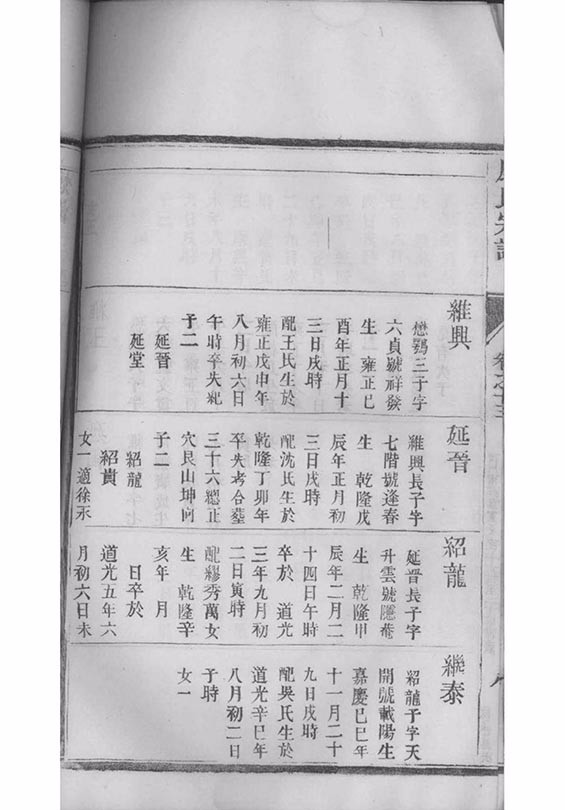 氏宗譜
卷之十三
維興
懋鸚三子字
六貞號祥發
生 雍正己
酉年正月十
三日戌時
配王氏生於
雍正戊申年
八月初六日
午時卒失紀
子二
延晉
延堂
延晉
維興長子字
七階號逢春
生 乾隆戊
辰年正月初
三日戌時
配沈氏生於
乾隆丁卯年
卒失考合塟
三十六總正
穴艮山坤向
子二
紹龍
紹貴
女一適徐禾
紹龍
延晉長子字
升雲號隱菴
生 乾隆甲
辰年二月二
十四日午時
卒於 道光
三年九月初
二日寅時
配繆秀萬女
生 乾隆辛
亥年 月
日卒於
道光五年六
月初六日未
繼泰
紹龍子字天
開號載陽生
嘉慶己巳年
十一月二十
九日戌時
配吳氏生於
道光辛巳年
八月初二日
子時
女一